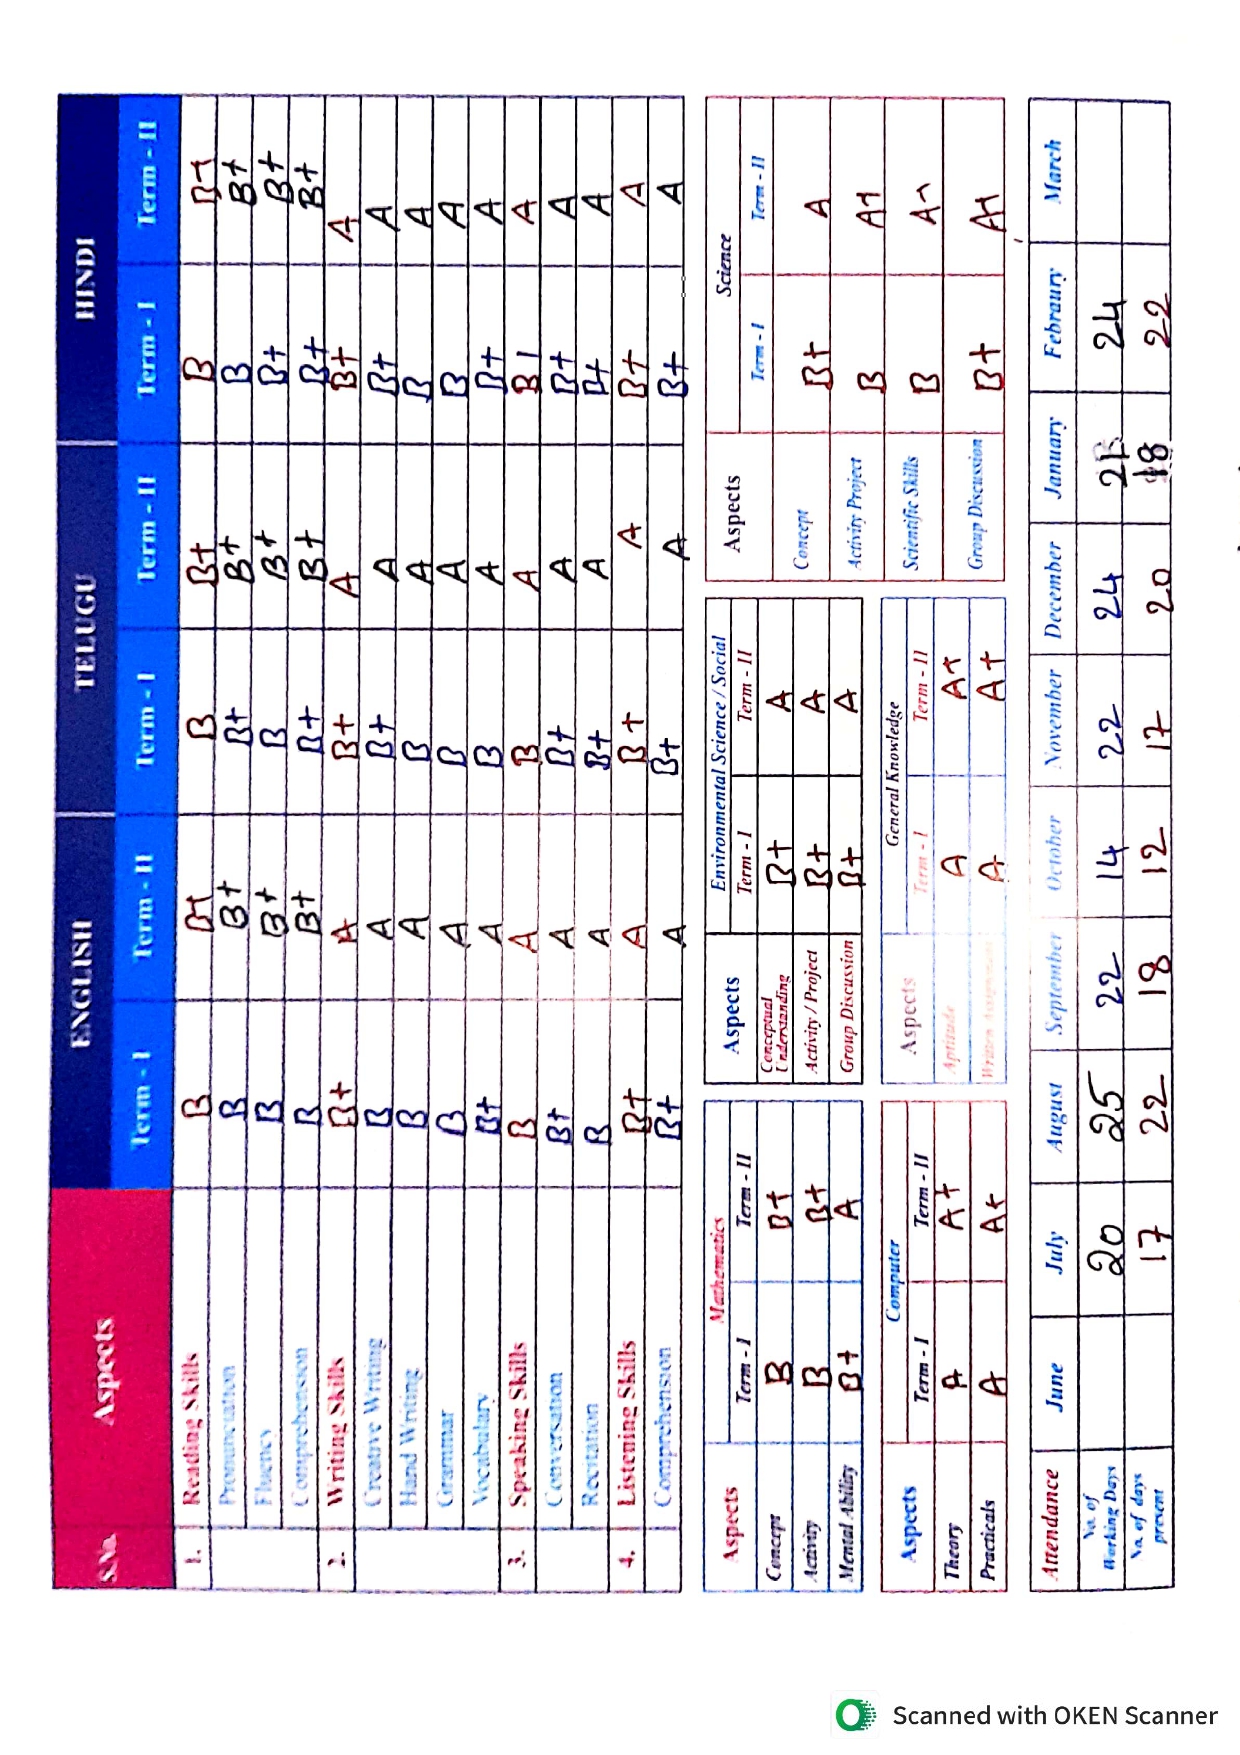 S.No. Aspects ENGLISH TELUGU HINDI
Term - I Term - II Term - I Term - II Term - I Term - II
1. Reading Skills B B+ B B+ B B+
Pronunciation B B+ B+ B+ B B+
Fluency B B+ B B+ B+ B+
Comprehension B B+ B+ B+ B+ B+
2. Writing Skills B+ A B+ A B+ A
Creative Writing B A B+ A B+ A
Hand Writing B A B A B A
Grammar B A B A B A
Vocabulary B+ A B A B+ A
3. Speaking Skills B A B A B A
Conversation B+ A B+ A B+ A
Recitation B A B+ A B+ A
4. Listening Skills B+ A B+ A B+ A
Comprehension B+ A B+ A B+ A
Aspects Mathematics
Term - I Term - II
Concept B B+
Activity B B+
Mental Ability B+ A
Aspects Environmental Science / Social
Term - I Term - II
Conceptual Understanding B+ A
Activity / Project B+ A
Group Discussion B+ A
Aspects Science
Term - I Term - II
Concept B+ A
Activity Project B A+
Scientific Skills B A+
Group Discussion B+ A+
Aspects Computer
Term - I Term - II
Theory A A+
Practicals A A+
Aspects General Knowledge
Term - I Term - II
Aptitude A A+
Written Assignment A A+
Attendance June July August September October November December January Febraury March
No. of Working Days 20 25 22 14 22 24 21 24
No. of days present 17 22 18 12 17 20 18 22
Scanned with OKEN Scanner